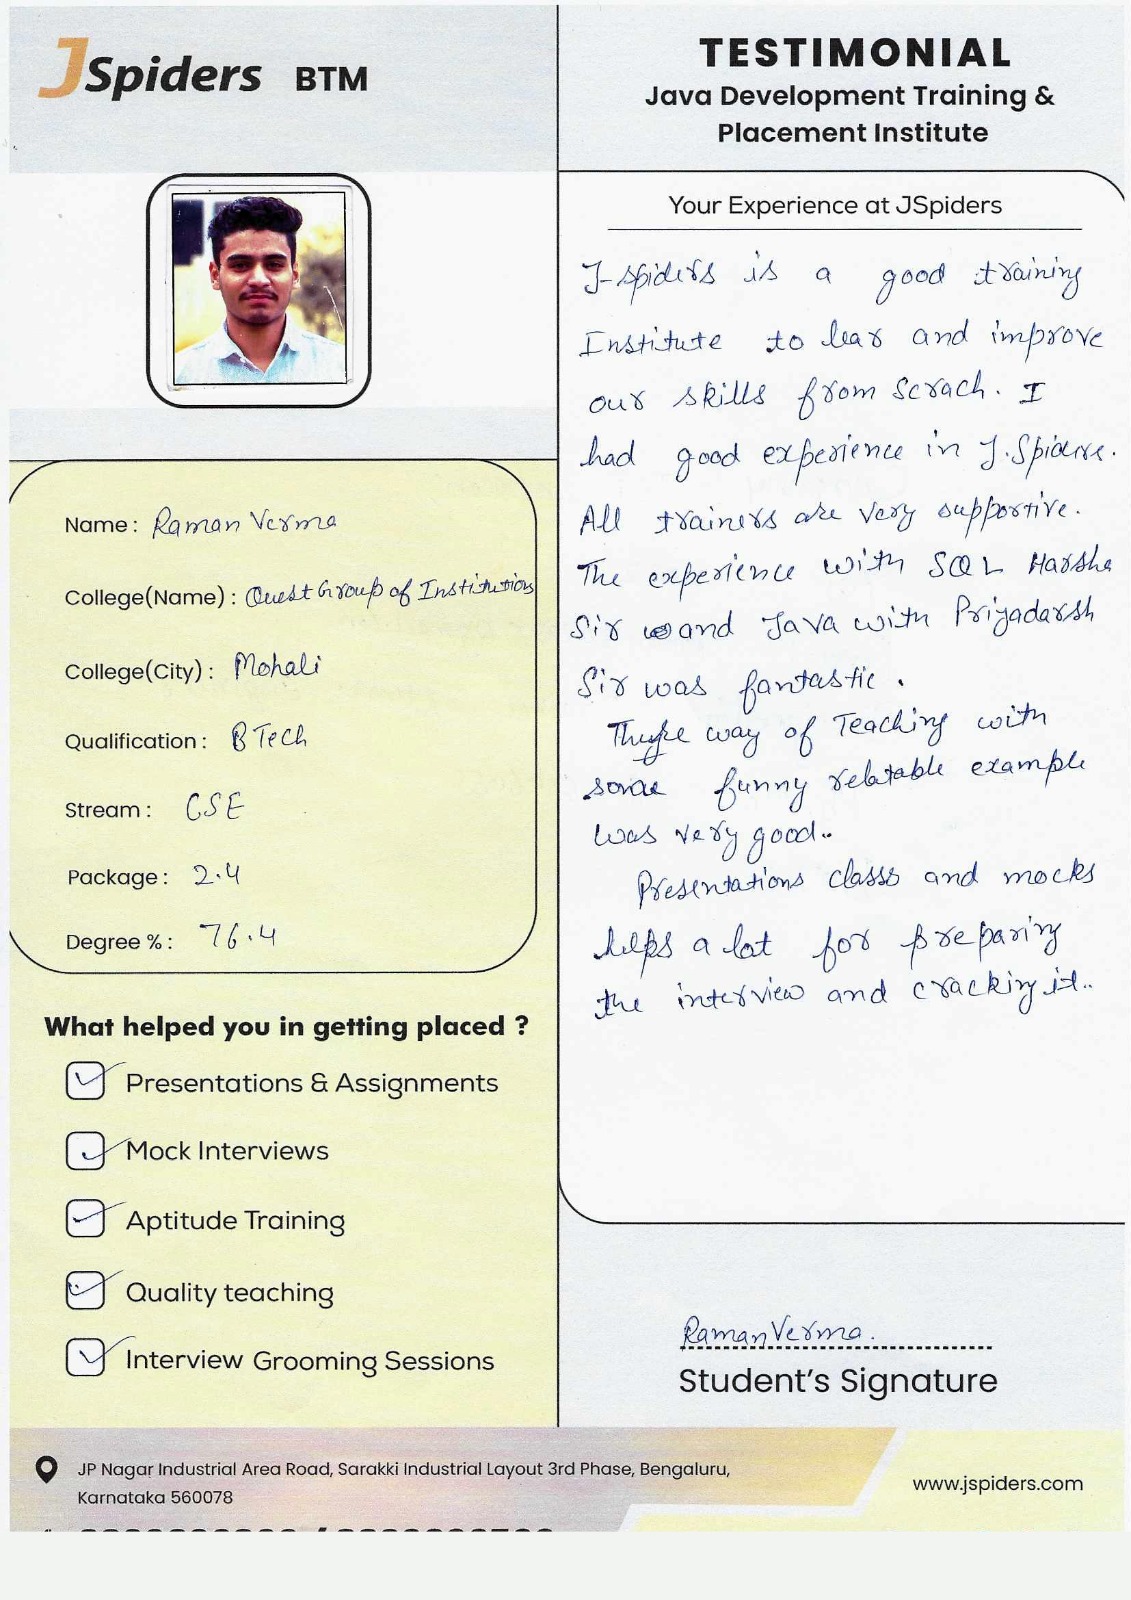 JSpiders BTM
TESTIMONIAL
Java Development Training &
Placement Institute
Name : Raman Verma
College(Name) : Quest Group of Institutions
College(City) : Mohali
Qualification : B Tech
Stream : CSE
Package : 2.4
Degree % : 76.4
What helped you in getting placed ?
Presentations & Assignments
Mock Interviews
Aptitude Training
Quality teaching
Interview Grooming Sessions
Your Experience at JSpiders
J-spiders is a good training
Institute to lear and improve
our skills from Scrach. I
had good experience in J.Spiders.
All trainers are very supportive.
The experience with SQL Harsha
Sir and Java with Priyadarsh
Sir was fantastic .
way of Teaching with
some funny relatable example
was very good..
Presentations classs and mocks
helps a lot for preparing
the interview and cracking it..
Raman Verma.
Student's Signature
JP Nagar Industrial Area Road, Sarakki Industrial Layout 3rd Phase, Bengaluru,
Karnataka 560078
www.jspiders.com